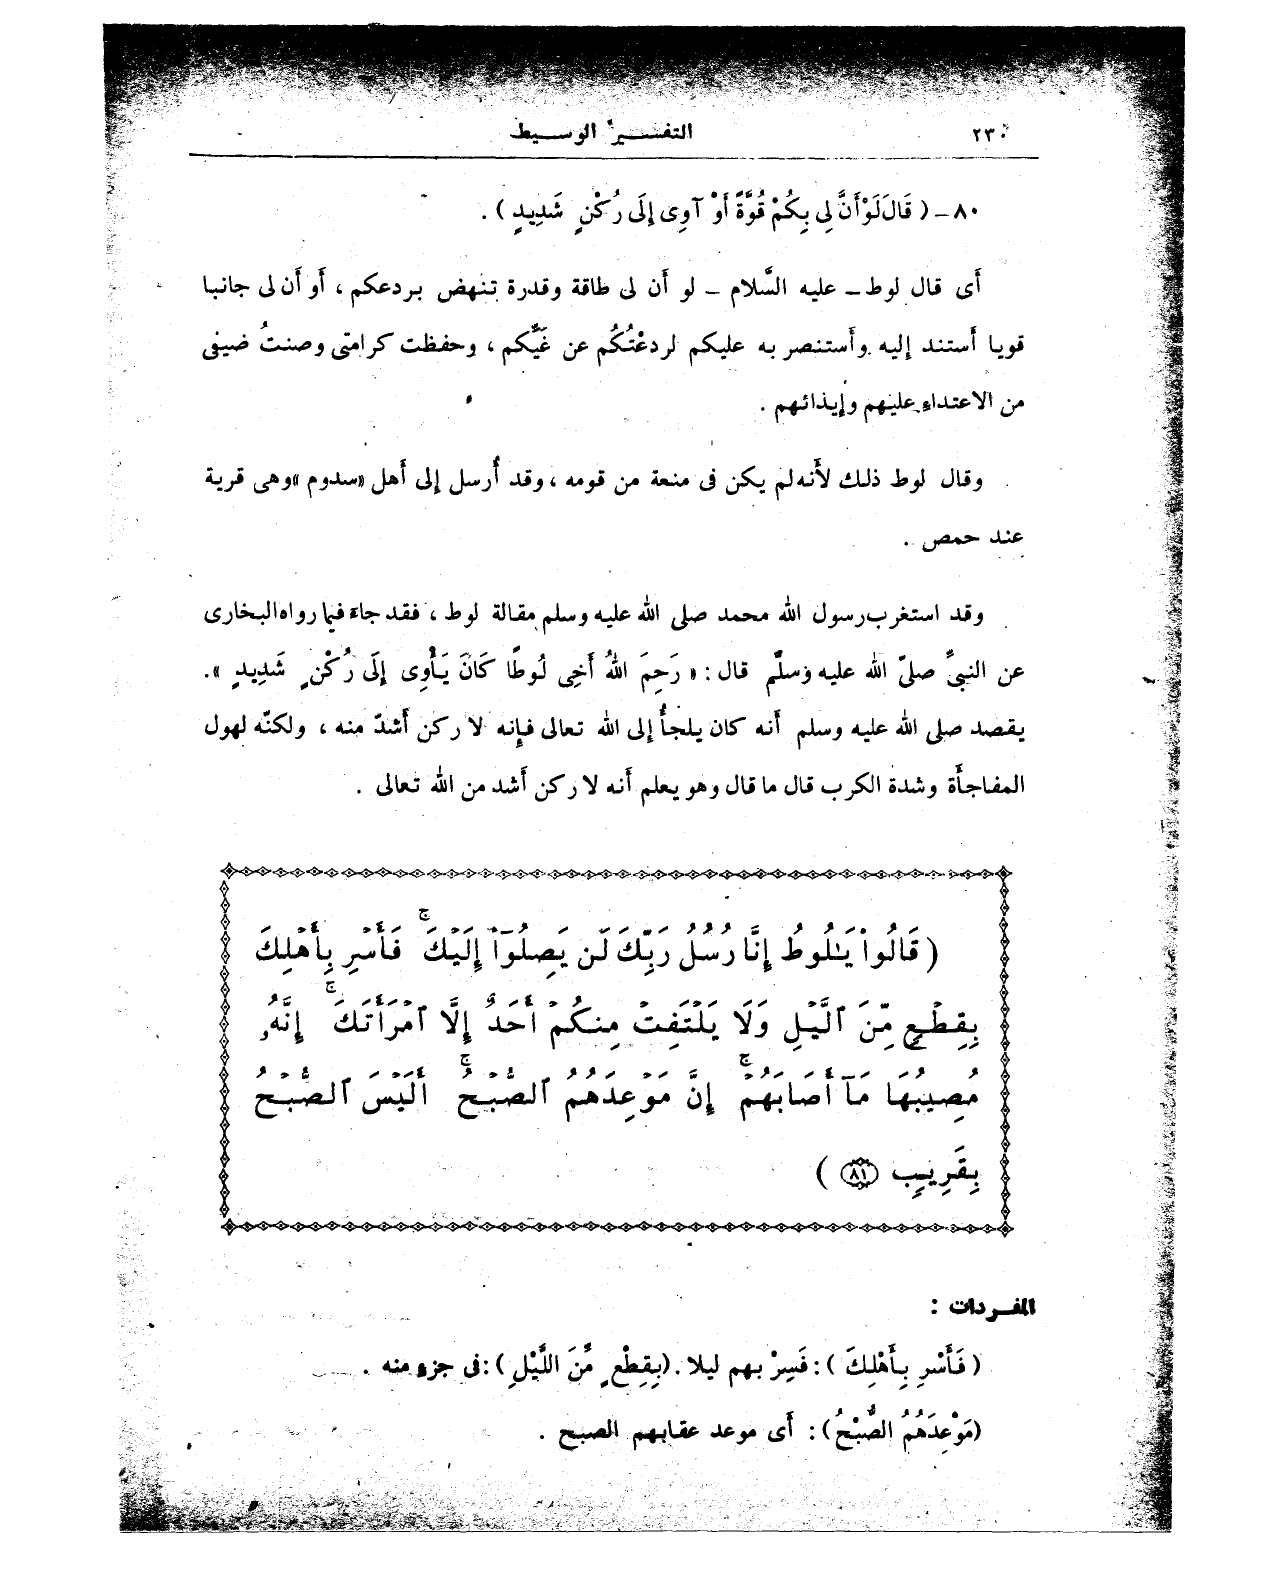 ٢٣٠ التفسير الوسيط
٨٠ – ( قَالَ لَوْ أَنَّ لِى بِكُمْ قُوَّةً أَوْ آوِى إِلَى رُكْنٍ شَدِيدٍ ) .
أَى قال لوط – عليه السَّلام – لو أَن لى طاقة وقدرة تنهض بردعكم ، أَو أَن لى جانبا
قويا أَستند إليه وأَستنصر به عليكم لردعْتُكُم عن غَيِّكم ، وحفظت كرامتى وصنتُ ضيفى
من الاعتداءِ عليهم وإيذائهم .
وقال لوط ذلك لأَنه لم يكن فى منعة من قومه ، وقد أُرسل إلى أَهل «سدوم» وهى قرية
عند حمص .
وقد استغرب رسول الله محمد صلى الله عليه وسلم مقالة لوط ، فقد جاءَ فيما رواه البخارى
عن النبىِّ صلىّ الله عليه وَسلَّم قال : « رَحِمَ اللهُ أَخِى لُوطًا كَانَ يَأْوِى إِلَى رُكْنٍ شَدِيدٍ ».
يقصد صلى الله عليه وسلم أَنه كان يلجأُ إلى الله تعالى فإنه لا ركن أَشدّ منه ، ولكنّه لهول
المفاجأَة وشدة الكرب قال ما قال وهو يعلم أَنه لا ركن أَشد من الله تعالى .
( قَالُوا۟ يَـٰلُوطُ إِنَّا رُسُلُ رَبِّكَ لَن يَصِلُوٓا۟ إِلَيْكَ ۚ فَأَسْرِ بِأَهْلِكَ
بِقِطْعٍ مِّنَ ٱلَّيْلِ وَلَا يَلْتَفِتْ مِنكُمْ أَحَدٌ إِلَّا ٱمْرَأَتَكَ ۚ إِنَّهُۥ
مُصِيبُهَا مَآ أَصَابَهُمْ ۚ إِنَّ مَوْعِدَهُمُ ٱلصُّبْحُ ۚ أَلَيْسَ ٱلصُّبْحُ
بِقَرِيبٍ ﴿٨١﴾ )
المفـردات :
( فَأَسْرِ بِأَهْلِكَ ) : فَسِرْ بهم ليلا . (بِقِطْعٍ مِّنَ اللَّيْلِ ) : فى جزءٍ منه .
(مَوْعِدَهُمُ الصُّبْحُ ) : أَى موعد عقابهم الصبح .